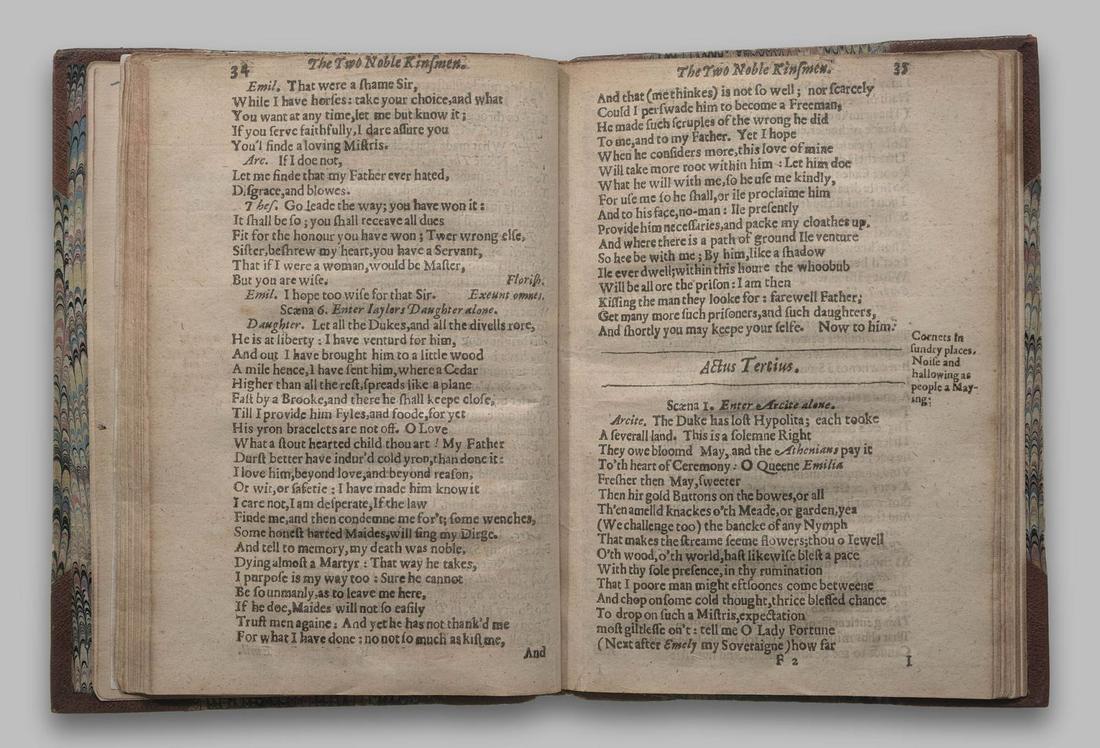 34
The Two Noble Kinſmen.
Emil. That were a ſhame Sir,
While I have horſes: take your choice,and what
You want at any time,let me but know it;
If you ſerve faithfully,I dare aſſure you
You'l finde a loving Miſtris.
Arc. If I doe not,
Let me finde that my Father ever hated,
Diſgrace,and blowes.
Theſ. Go leade the way; you have won it:
It ſhall be ſo; you ſhall receave all dues
Fit for the honour you have won; Twer wrong elſe,
Siſter,beſhrew my heart,you have a Servant,
That if I were a woman,would be Maſter,
But you are wiſe. Floriſh.
Emil. I hope too wiſe for that Sir. Exeunt omnes.
Scæna 6. Enter Iaylors Daughter alone.
Daughter. Let all the Dukes,and all the divells rore,
He is at liberty: I have venturd for him,
And out I have brought him to a little wood
A mile hence,I have ſent him,where a Cedar
Higher than all the reſt,ſpreads like a plane
Faſt by a Brooke,and there he ſhall keepe cloſe,
Till I provide him Fyles,and foode,for yet
His yron bracelets are not off. O Love
What a ſtout hearted child thou art! My Father
Durſt better have indur'd cold yron,than done it:
I love him,beyond love,and beyond reaſon,
Or wit,or ſafetie: I have made him know it
I care not,I am deſperate,If the law
Finde me,and then condemne me for't; ſome wenches,
Some honeſt harted Maides,will ſing my Dirge.
And tell to memory,my death was noble,
Dying almoſt a Martyr: That way he takes,
I purpoſe is my way too: Sure he cannot
Be ſo unmanly,as to leave me here,
If he doe,Maides will not ſo eaſily
Truſt men againe: And yet he has not thank'd me
For what I have done: no not ſo much as kiſt me,
And
The Two Noble Kinſmen.
35
And that (me thinkes) is not ſo well; nor ſcarcely
Could I perſwade him to become a Freeman,
He made ſuch ſcruples of the wrong he did
To me,and to my Father. Yet I hope
When he conſiders more,this love of mine
Will take more root within him: Let him doe
What he will with me,ſo he uſe me kindly,
For uſe me ſo he ſhall,or ile proclaime him
And to his face,no-man: Ile preſently
Provide him neceſſaries,and packe my cloathes up.
And where there is a path of ground Ile venture
So hee be with me; By him,like a ſhadow
Ile ever dwell;within this houre the whoobub
Will be all ore the priſon: I am then
Kiſſing the man they looke for: farewell Father;
Get many more ſuch priſoners,and ſuch daughters,
And ſhortly you may keepe your ſelfe. Now to him:
Cornets in
ſundry places.
Noiſe and
hallowing as
people a May-
ing:
Actus Tertius.
Scæna 1. Enter Arcite alone.
Arcite. The Duke has loſt Hypolita; each tooke
A ſeverall land. This is a ſolemne Right
They owe bloomd May, and the Athenians pay it
To'th heart of Ceremony: O Queene Emilia
Freſher then May,ſweeter
Then hir gold Buttons on the bowes,or all
Th'en amelld knackes o'th Meade,or garden,yea
(We challenge too) the bancke of any Nymph
That makes the ſtreame ſeeme flowers;thou o Iewell
O'th wood,o'th world,haſt likewiſe bleſt a pace
With thy ſole preſence,in thy rumination
That I poore man might eftſoones come betweene
And chop on ſome cold thought,thrice bleſſed chance
To drop on ſuch a Miſtris,expectation
moſt giltleſſe on't: tell me O Lady Fortune
(Next after Emely my Soveraigne) how far
F 2
I